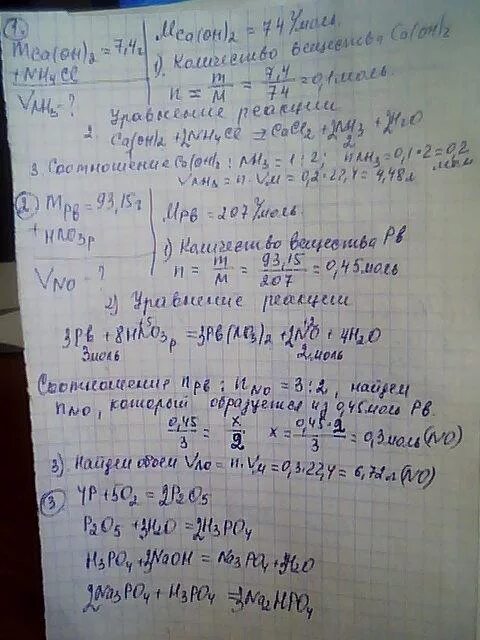 1. mCa(OH)2 = 7,4г
+ NH4Cl
VNH3 - ?
MCa(OH)2 = 74 г/моль.
1). Количество вещества Ca(OH)2
n = m/M = 7,4/74 = 0,1 моль.
Уравнение реакции
2. Ca(OH)2 + 2NH4Cl = CaCl2 + 2NH3 + 2H2O
3. Соотношение Ca(OH)2 : NH3 = 1:2; nNH3 = 0,1·2 = 0,2 моль
VNH3 = n·Vм = 0,2·22,4 = 4,48л
2 mPb = 93,15г
+ HNO3 р
VNO - ?
MPb = 207 г/моль
1) Количество вещества Pb
n = m/M = 93,15/207 = 0,45 моль
2) Уравнение реакции
3Pb + 8HNO3 р = 3Pb(NO3)2 + 2NO + 4H2O
3 моль 2 моль
Соотношение nPb : nNO = 3:2, найдем
nNO, который образуется из 0,45 моль Pb.
0,45/3 = x/2 x = 0,45·2/3 = 0,3 моль (NO)
3) Найдем объем VNO = n·Vм = 0,3·22,4 = 6,72л (NO)
3 4P + 5O2 = 2P2O5
P2O5 + 3H2O = 2H3PO4
H3PO4 + 3NaOH = Na3PO4 + 3H2O
2Na3PO4 + H3PO4 = 3Na2HPO4